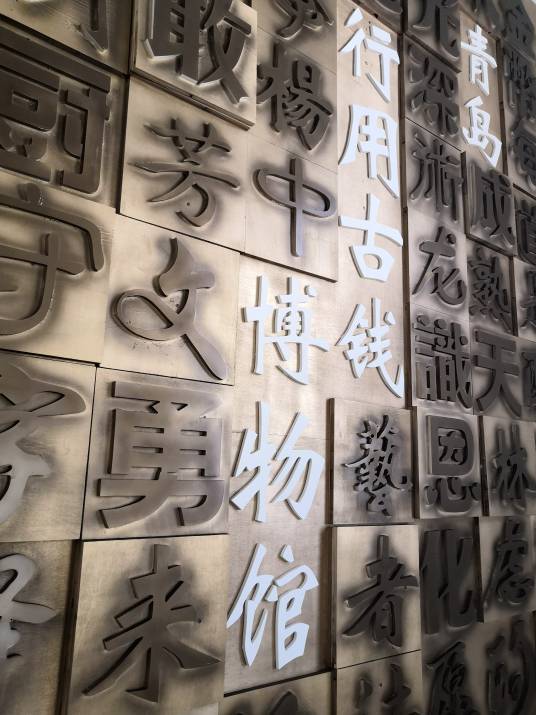 青岛成熟天林虑的
深術龙識恩化
行用古钱藝者
楊中博物馆
敢芳文勇来
厨守